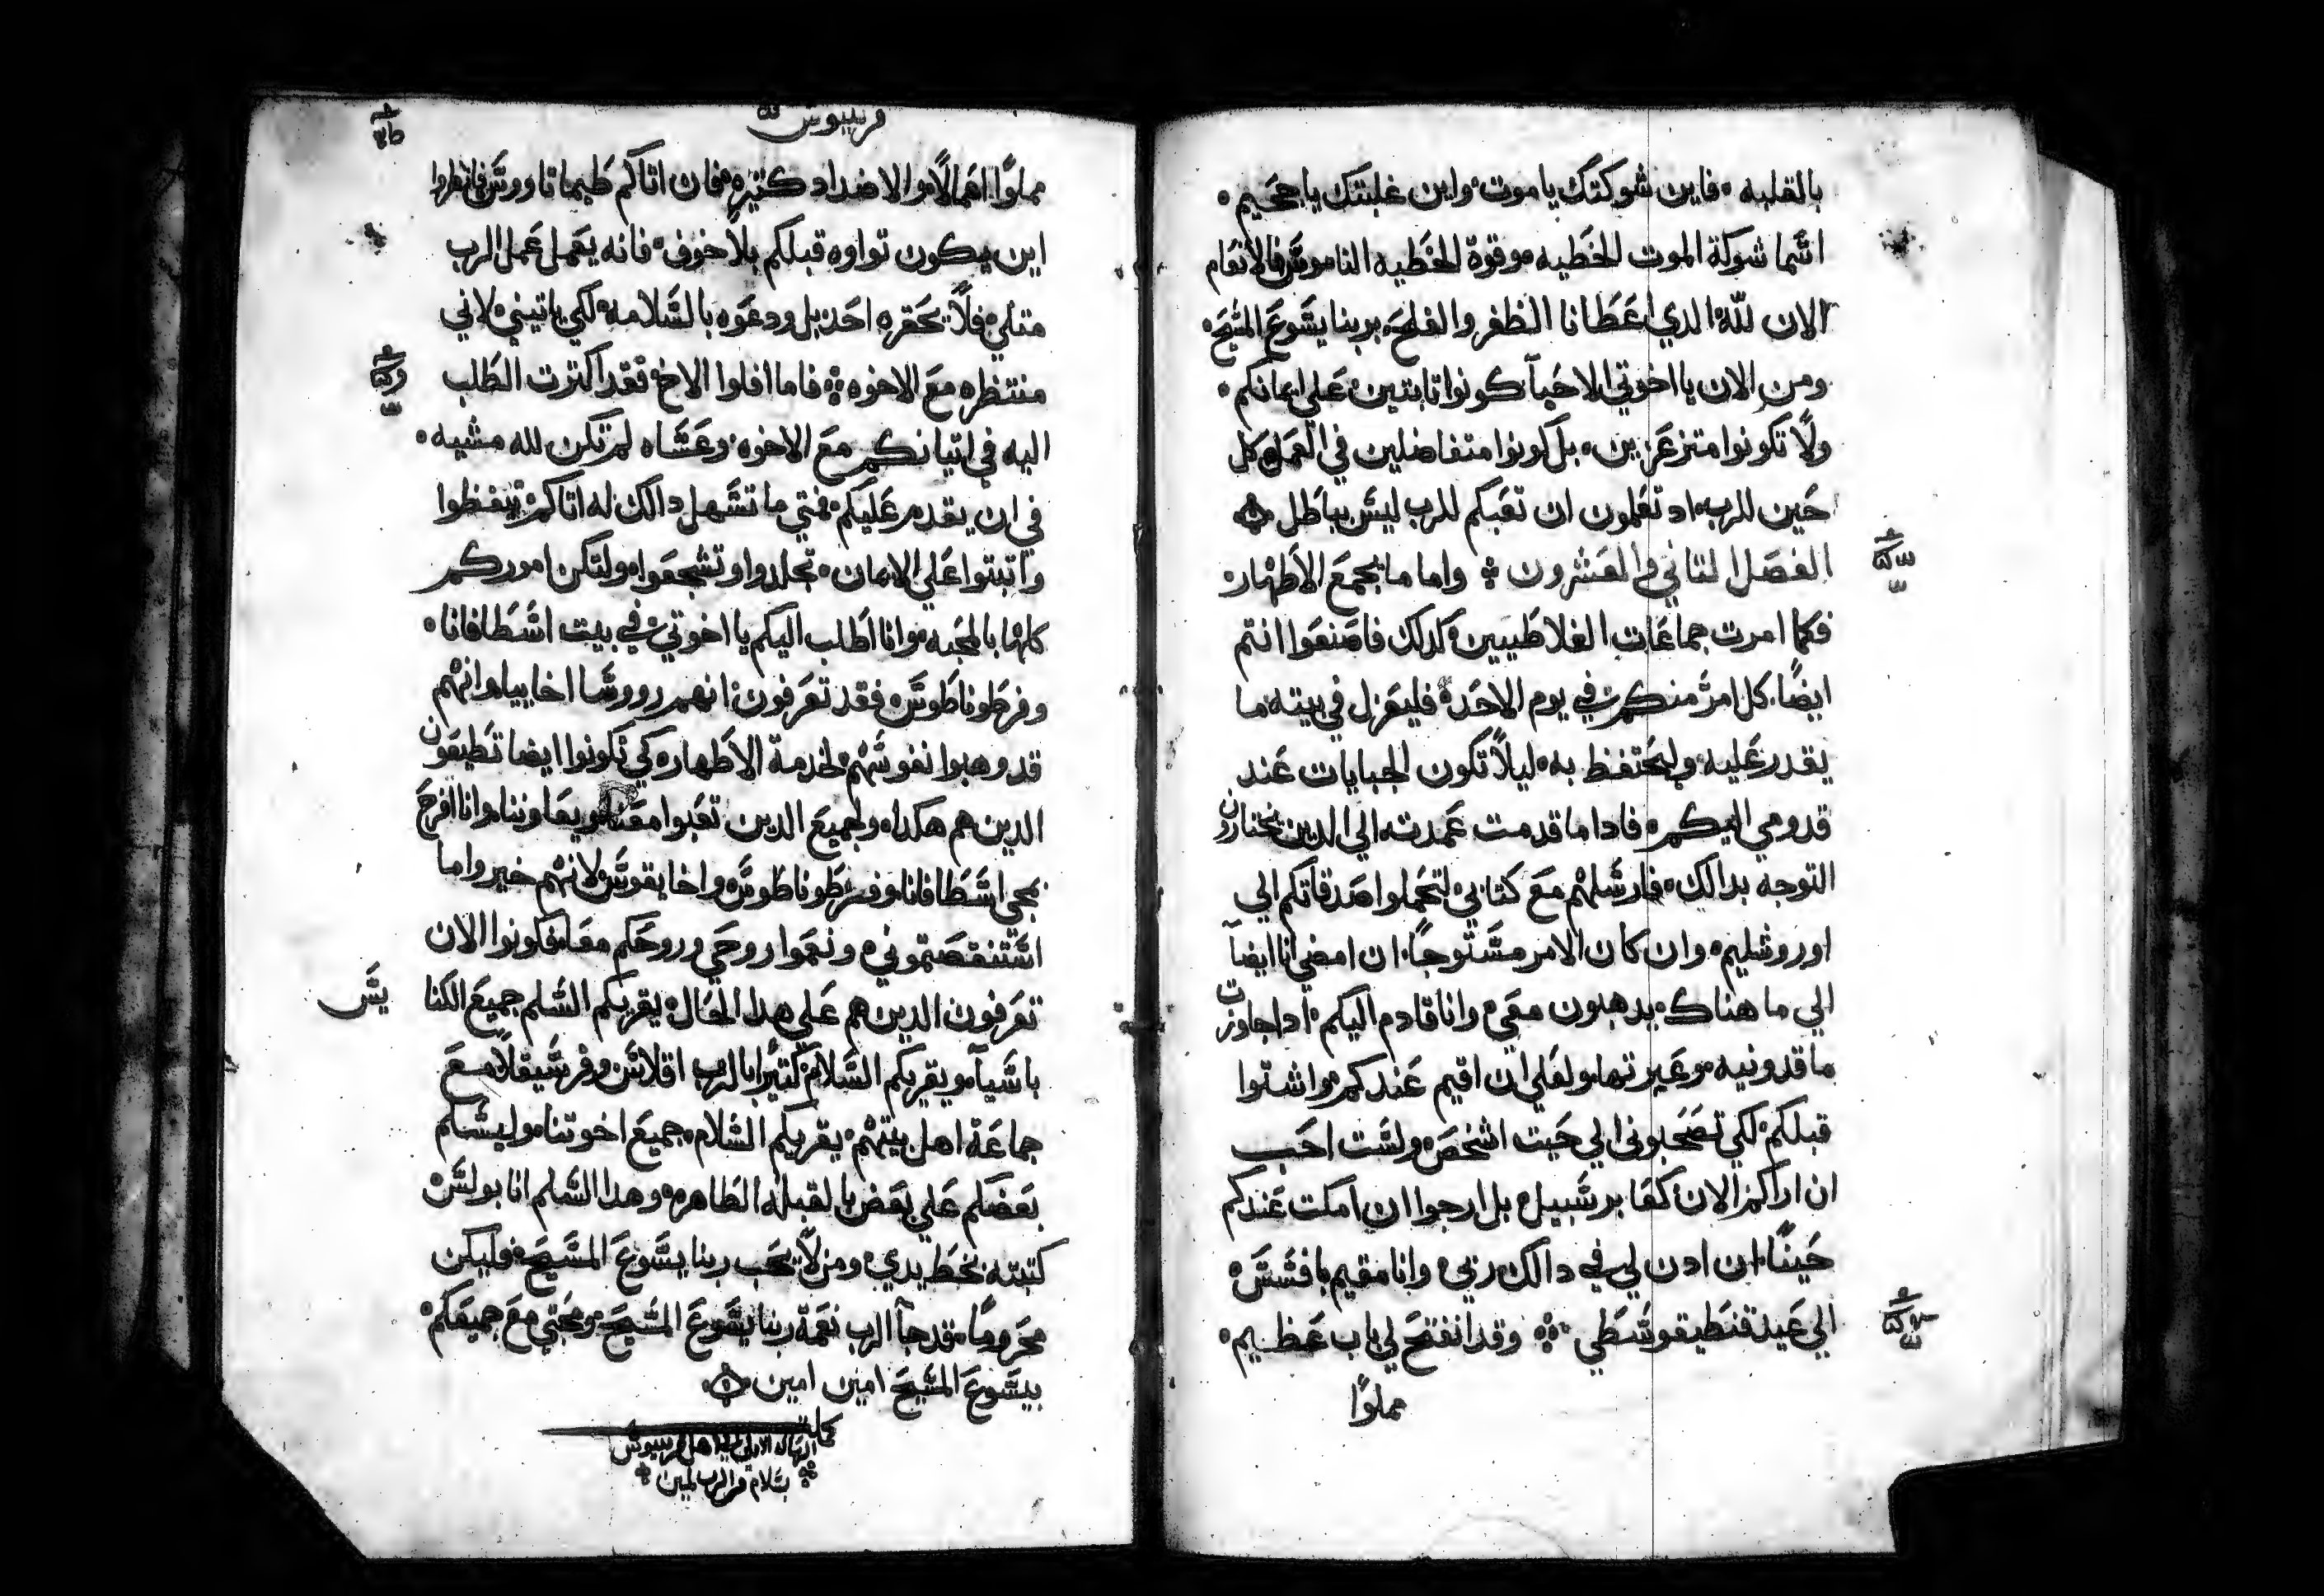 بالغلبه. فاين شوكتك ياموت. واين غلبتك ياجحيم.
انما شوكة الموت الخطيه. وقوة الخطيه الناموس. فالانعام
الان لله. الدي اعطانا الظفر والفلج. بربنا يسوع المسيح.
ومن الان يااخوتي الاحبآ كونوا تابتين. علي ايمانكم.
ولا تكونوا متزعزعين. بل كونوا متفاضلين في العمل كل
حين للرب. اد تعلمون ان تعبكم للرب ليس بباطل
الفصل التاني والعشرون واما ما يجمع الاطهار.
فكما امرت جماعات الغلاطيين. كدلك فاصنعوا انتم
ايضًا. كل امرً منكم في يوم الاحد. فليعزل في بيته ما
يقدر عليه. وليحتفظ به. ليلاً تكون الجبايات عند
قدومي اليكم. فادا ما قدمت عمدت الي الدين تختارون
التوجه بدالك. فارسلهم مع كتابي. لتحملوا صدقاتكم الي
اوروشليم. وان كان الامر مستوجبًا. ان امضي انا ايضآ
الي ما هناك. يدهبون معي. وانا قادم اليكم. ادا جاوزت
ماقدونيه. وعبرتها. ولعلي ان اقيم عندكم. واشتوا
قبلكم. لكي تصحبوني الي حيت اشخص. ولست احب
ان اراكم الان كعابر سبيل. بل ارجوا ان امكت عندكم
حينًا. ان ادن لي في دالك ربي. وانا مقيم بافسس.
الي عيد قنطيقوسطي وقد انفتح لي باب عظيم.
مملوًا
فرييوس
مملوًا اعمالاً. والاضداد كتيره. فان اتاكم طيماتاووس. فانظروا
اين يكون تواوه قبلكم بلاخوف. فانه يعمل عمل الرب
متلي. فلا يحقره احد. بل ودعوه بالسلامه. لكي ياتيني. لاني
منتظره مع الاخوه فاما افلوا الاخ. فقد اكترت الطلب
اليه في اتيانكم مع الاخوه. وعساه لم تكن لله مشيه.
في ان يقدم عليكم. فمتي ما تسهل دالك له اتاكم. تيقظوا
واتبتوا علي الايمان. تجلدوا وتشجعوا. ولتكن اموركم
كلها بالمحبه. وانا اطلب اليكم يااخوتي. في بيت اسطافانا.
وفرطوناطوس. فقد تعرفون. انهم رووسا اخاييا. وانهم
قد وهبوا نفوسهم لخدمة الاطهار. كي تكونوا ايضا تطيعون
الدين هم هكدا. ولجميع الدين تعبوا معنا. ويعاوننا. وانا افرح
بمجي اسطافانا. وفرطوناطوس. واخايقوس. لانهم خبروا ما
استنقصتموني. ونعموا روحي وروحكم معا. فكونوا الان
تعرفون الدين هم علي هدا الحال. يقريكم السلم جميع الكنا
يس
باسيآ. ويقريكم السلام كتيرًا بالرب اقلاس. وفرسيقلا. مع
جماعة اهل بيتهم. يقريكم السلام. جميع اخوتنا. وليسلم
بعضكم علي بعض بالقبله الطاهره. وهدا السلم انا بولس.
كتبته بخط يدي. ومن لا يحب ربنا يسوع المسيح. فليكن
محرومًا. قد جآ الرب نعمة ربنا يسوع المسيح. ومحبتي مع جميعكم.
بيسوع المسيح امين امين
كملت
الرساله الاولي الي اهل
بسلام من الرب امين